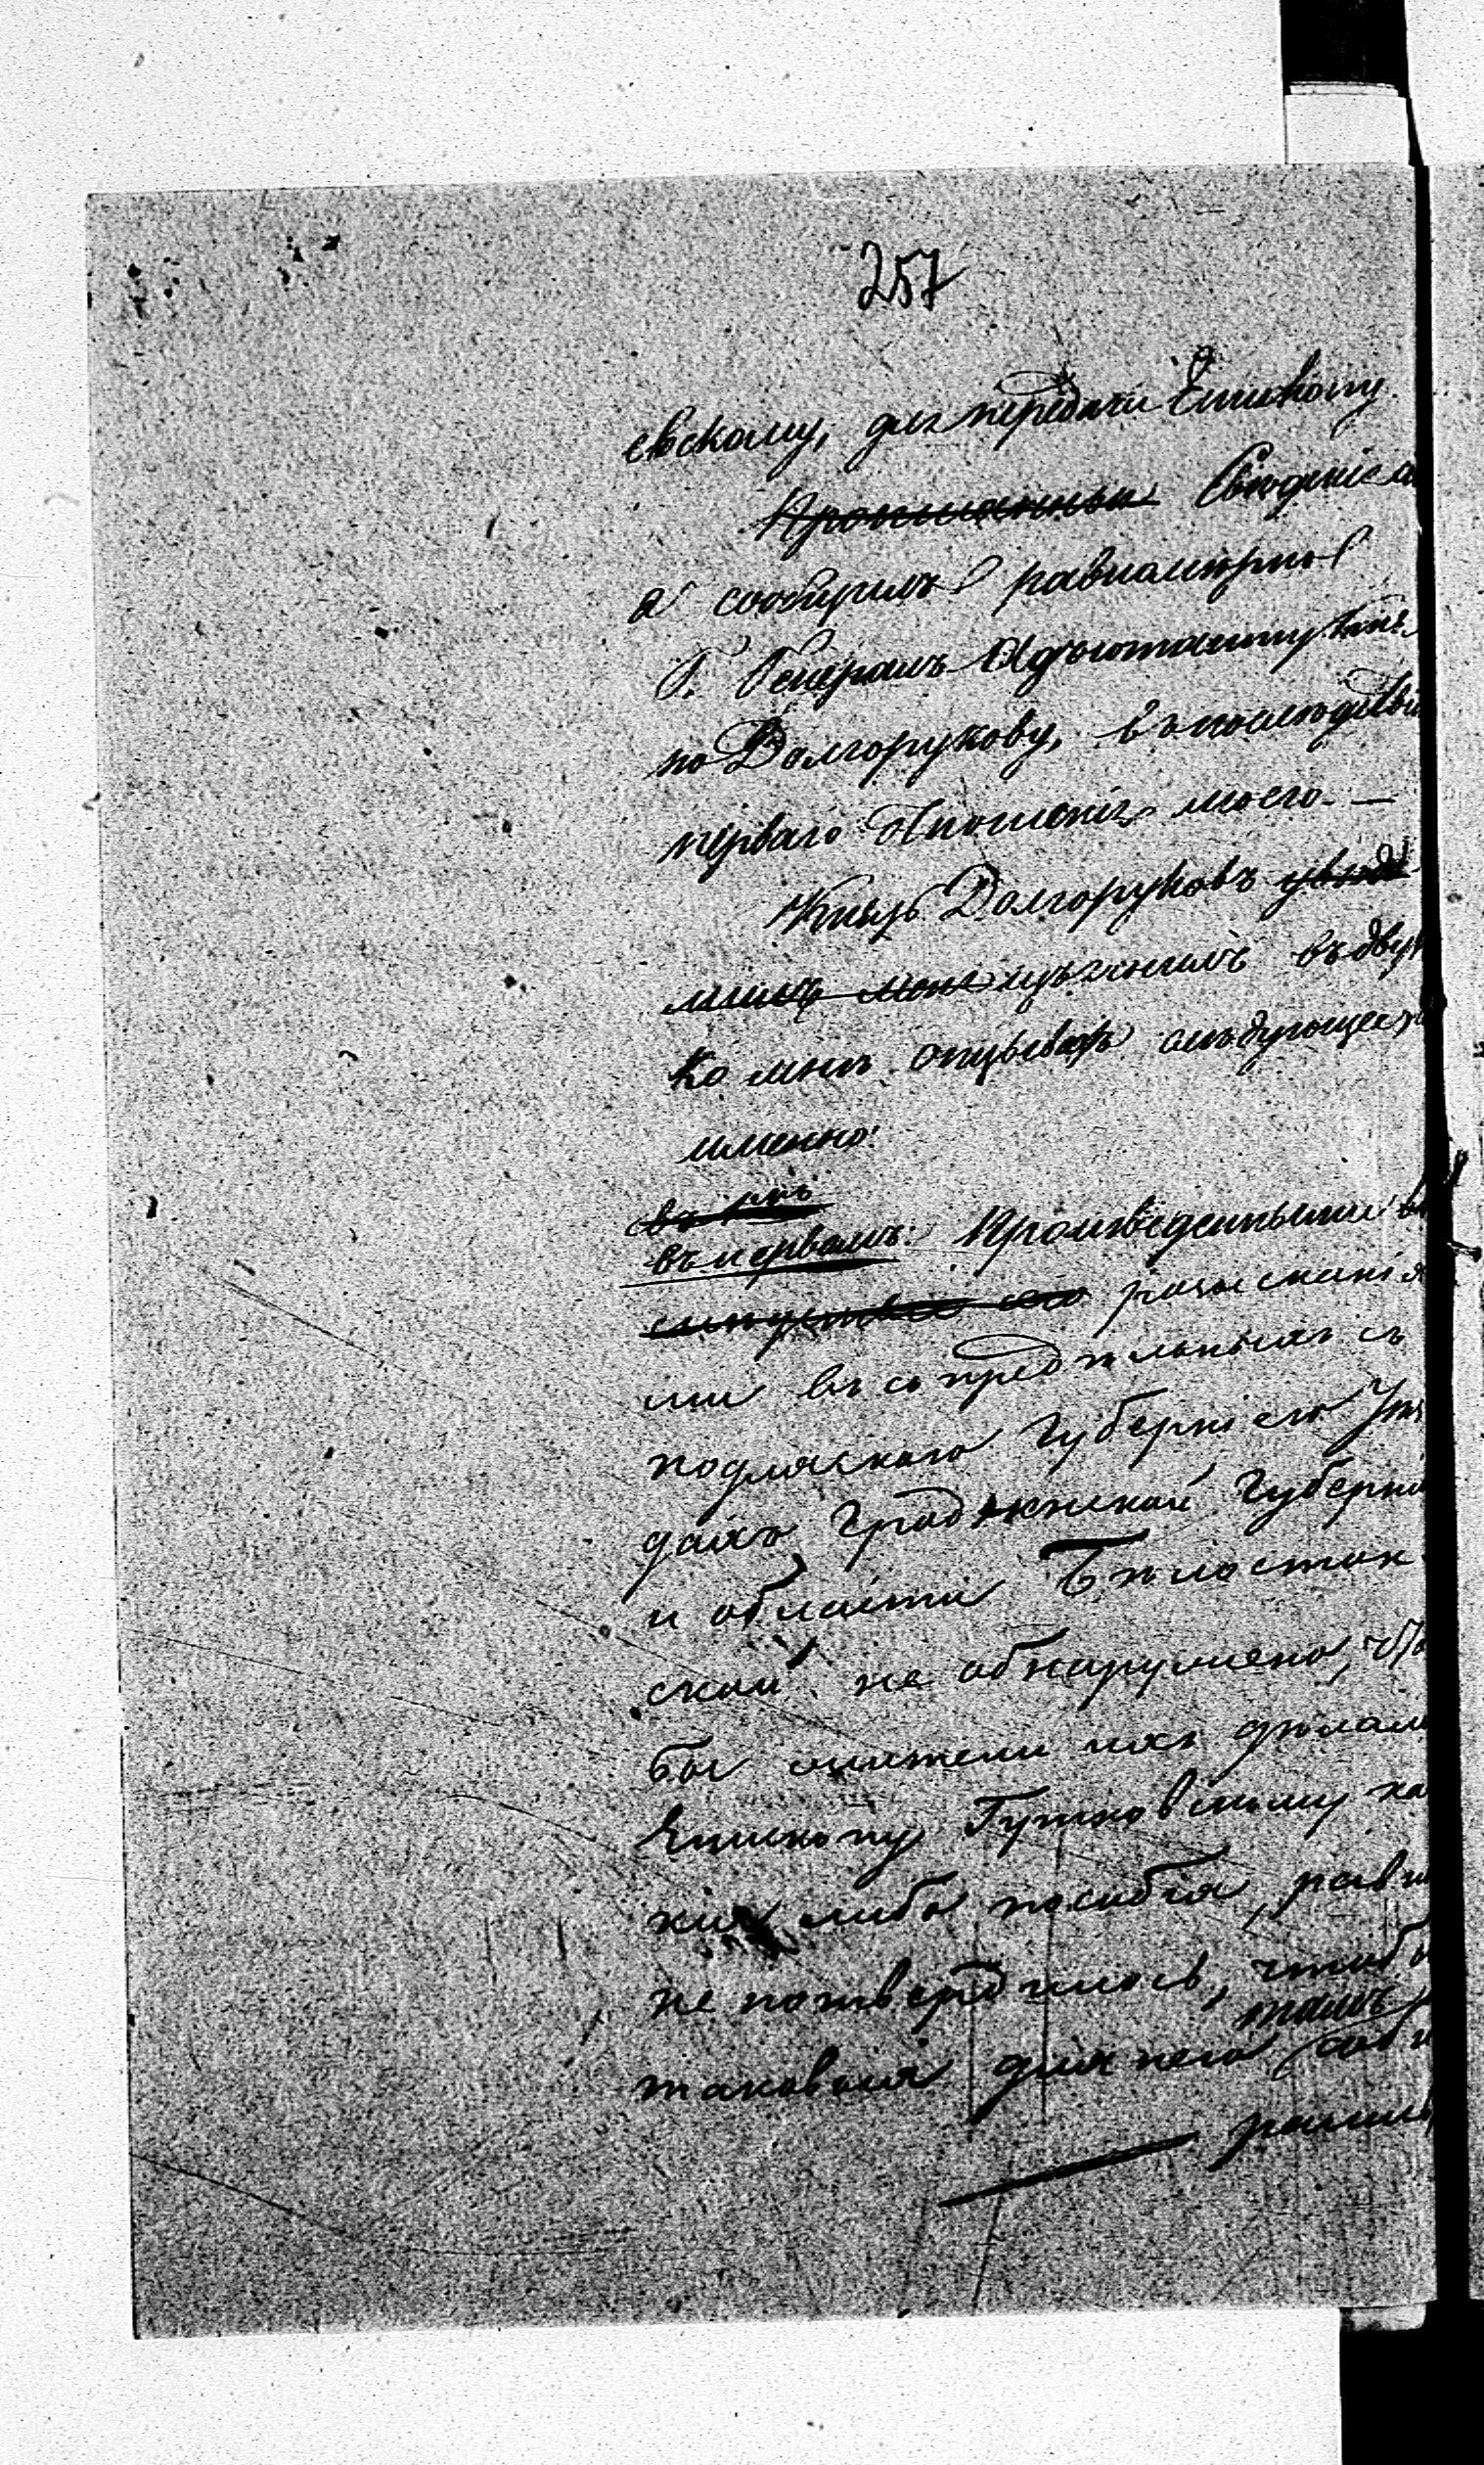 257
евскому, для передачи Епископу.
Сведенія сіи
я сообщилъ равномерно
Г. Генералъ Адъютанту Кня
зю Долгорукову, въ последствіи
перваго отношенія моего. —
Князь Долгоруковъ уведо
милъ меня изъяснилъ въ двухъ
ко мнѣ отзывахъ следующее, а
именно:
въ первомъ: Произведенными въ
розысканія
ми въ сопредѣльныхъ съ
подляскою Губерніею Уѣз
дахъ Гродненской Губерніи
и области Бѣлосток
ской не обнаружено, что
бы жители ихъ дѣлали
Епископу Гутковскому ка
кія либо пособія, равно
не потвердилось, чтобы
тамъ
таковыя для него соби
рались